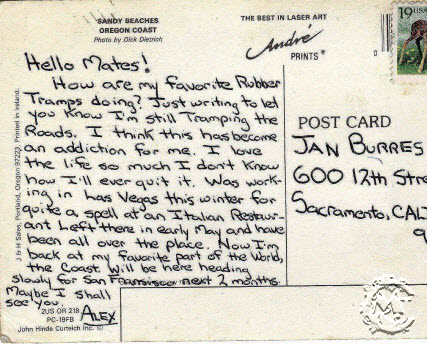 SANDY BEACHES
OREGON COAST
Photo by Dick Dietrich
Hello Mates!
How are my favorite Rubber
Tramps doing? Just writing to let
you know I'm still Tramping the
Roads. I think this has become
an addiction for me. I love
the life so much I don't know
how I'll ever quit it. Was work-
ing in Las Vegas this winter for
quite a spell at an Italian Restaur-
ant Left there in early May and have
been all over the place. Now I'm
back at my favorite part of the world,
the Coast. Will be here heading
slowly for San Fransisco next 2 months.
Maybe I shall
see you.
ALEX
2US OR 218
PC-19FB
John Hinde Curteich Inc. ©
J & H Sales, Portland, Oregon 97223. Printed in Ireland.
THE BEST IN LASER ART
André
PRINTS®
19 USA
POST CARD
JAN BURRES
600 12th Stre
Sacramento, CAL
9